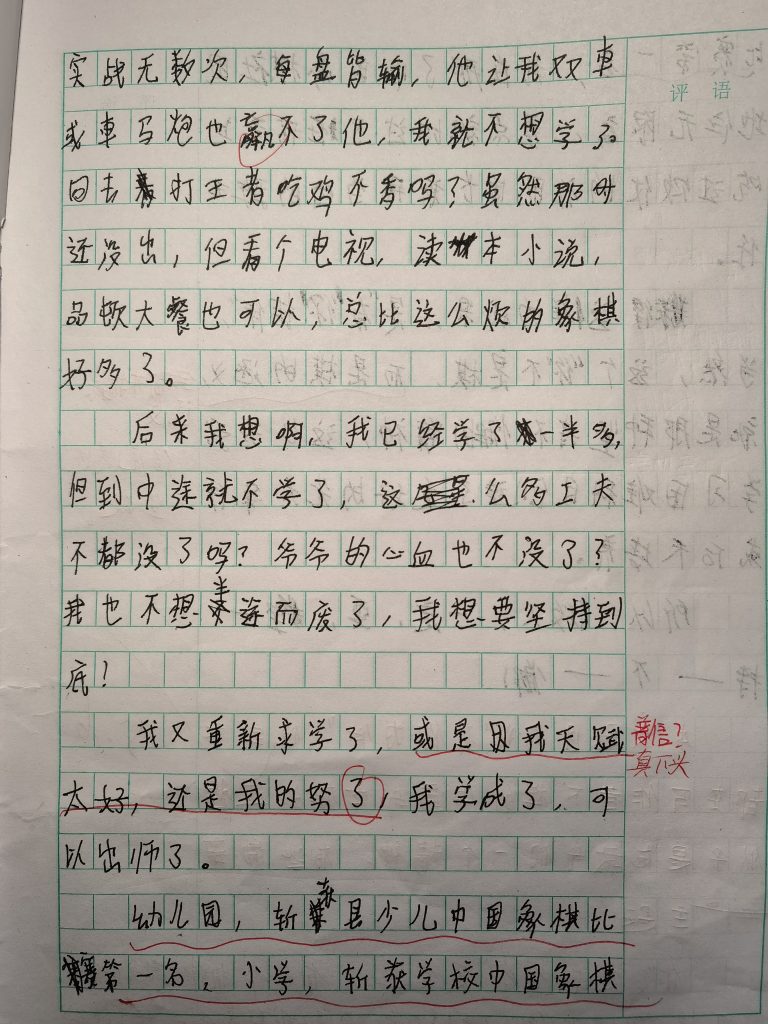 实战无数次，每盘皆输，他让我双車
评语
或車马炮也赢不了他，我就不想学了。
回去打王者吃鸡不香吗？虽然那时
还没出，但看个电视，读本小说，
品顿大餐也可以，总比这么烦的象棋
好多了。
后来我想啊，我已经学了一半多，
但到中途就不学了，这么多工夫
不都没了吗？爷爷的心血也不没了？
我也不想半途而废了，我想要坚持到
底！
我又重新求学了，或是因我天赋
普信？
真下头
太好，还是我的努了，我学成了，可
以出师了。
幼儿园，斩获县少儿中国象棋比
赛第一名，小学，斩获学校中国象棋